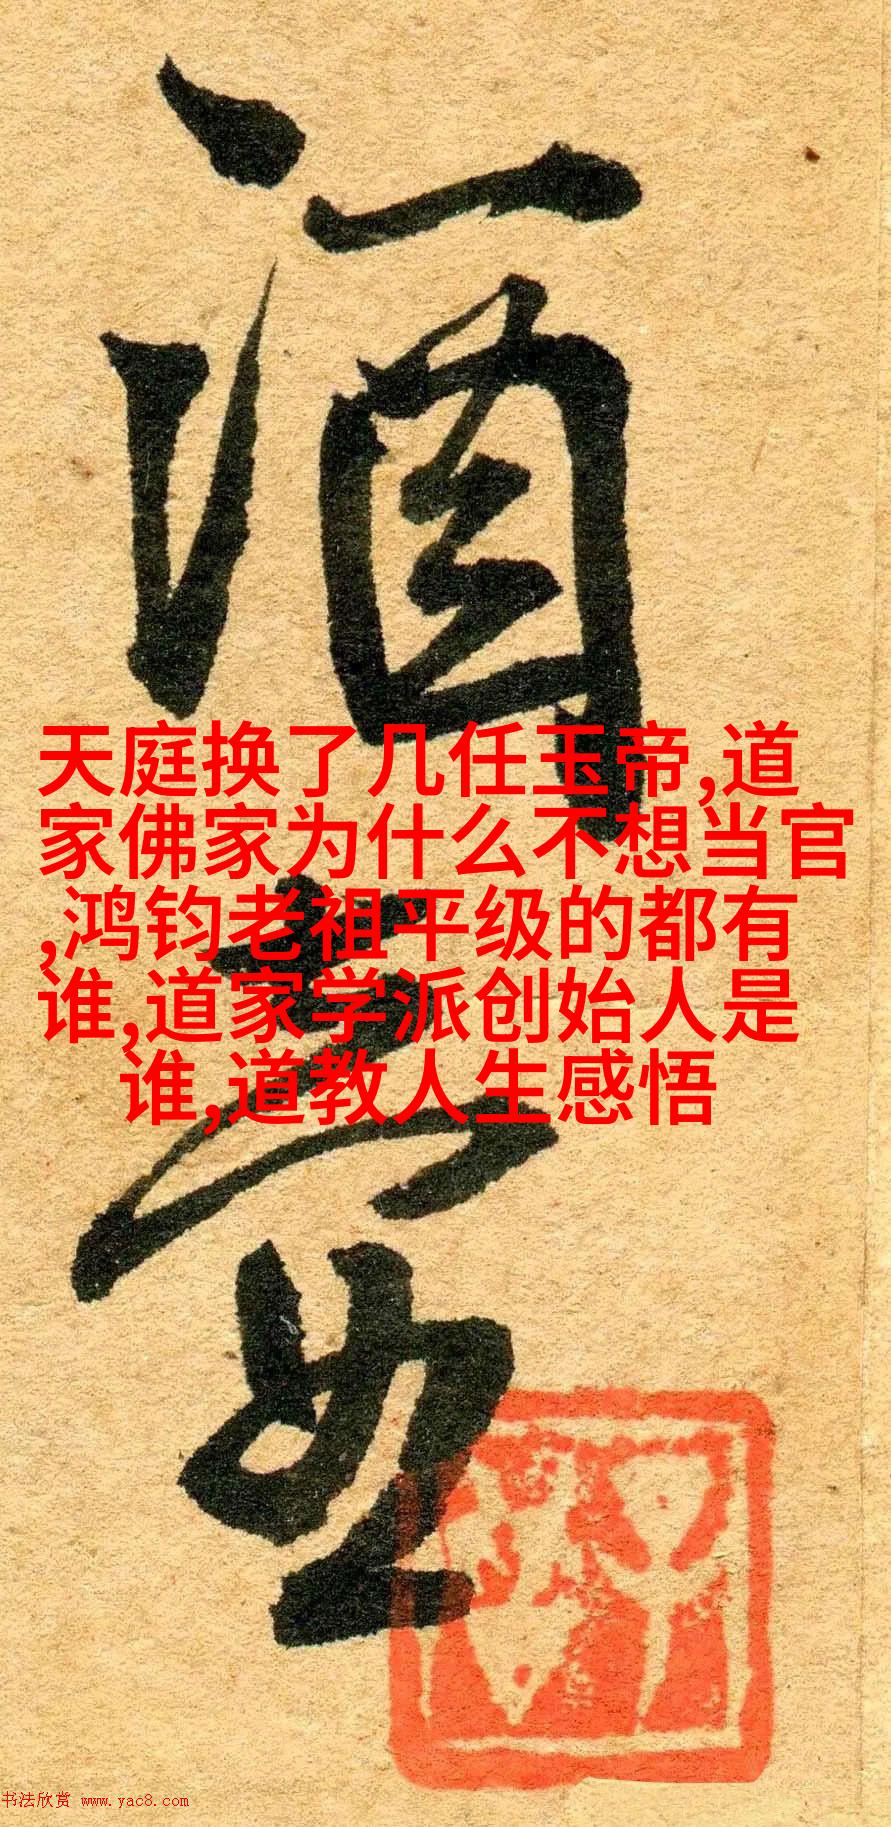 酒
天庭换了几任玉帝,道
家佛家为什么不想当官
,鸿钧老祖平级的都有
谁,道家学派创始人是
谁,道教人生感悟
书法欣赏 www.yac8.com